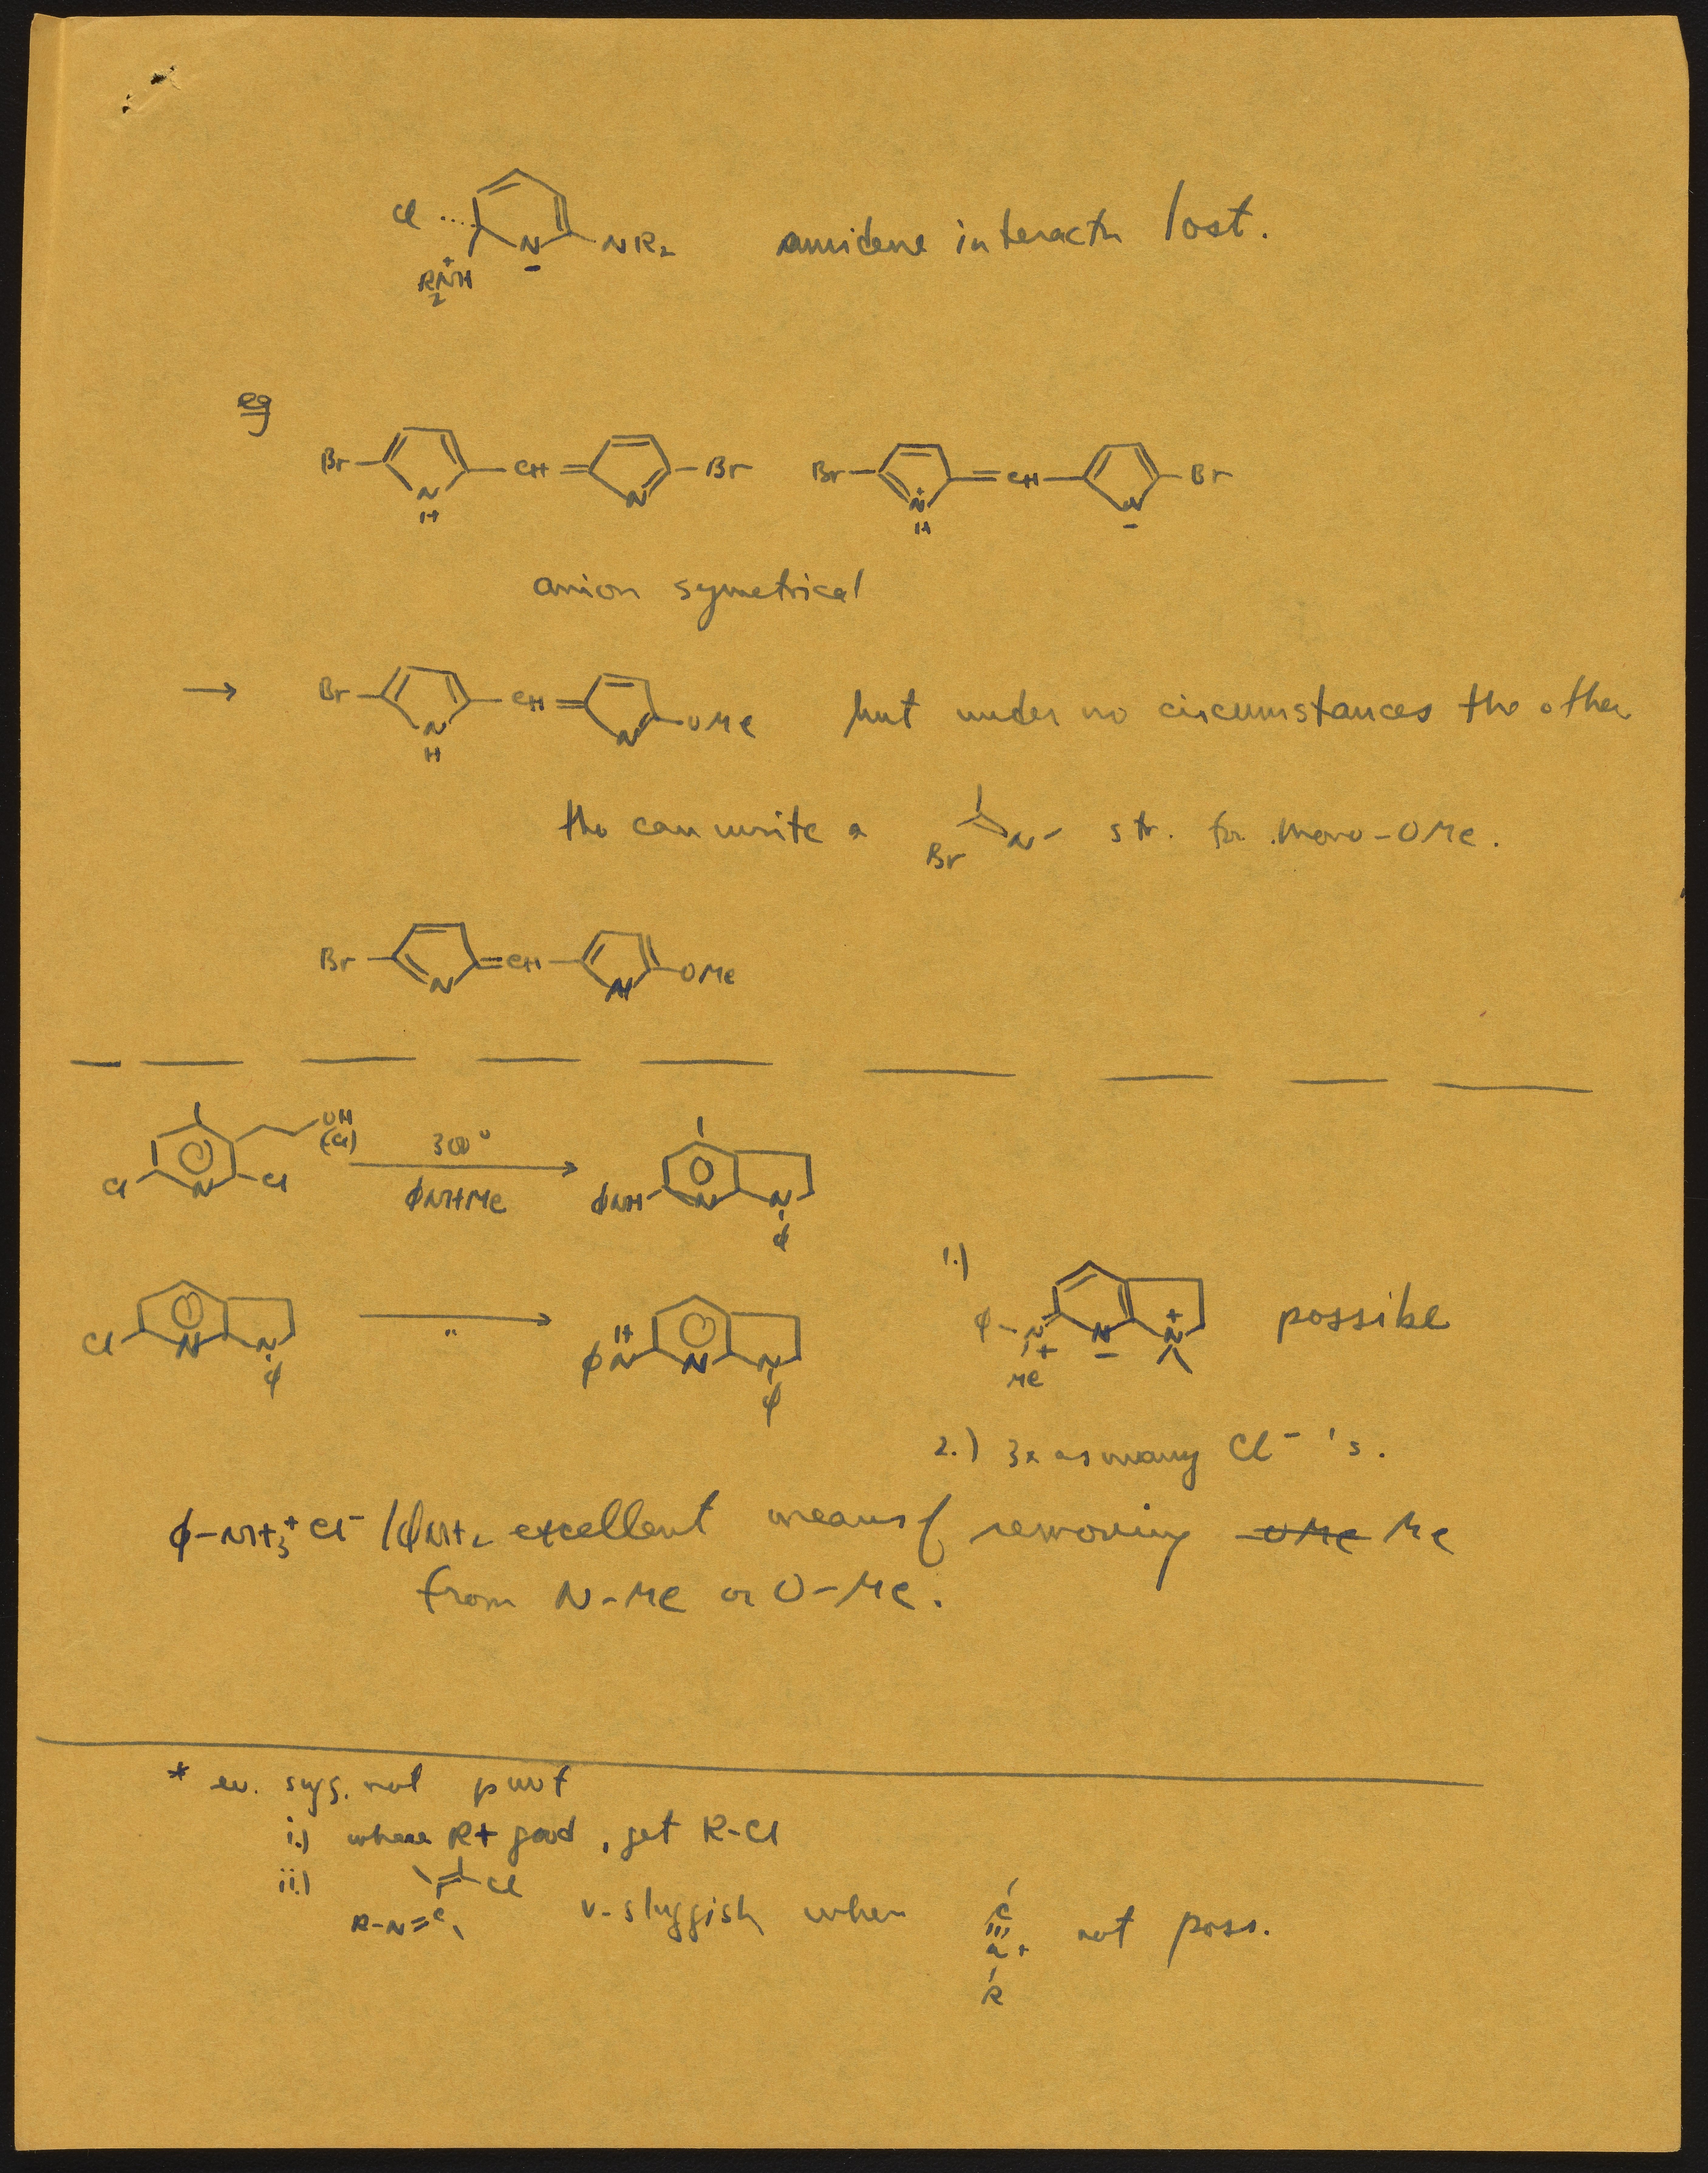 Cl N NR2 amidene interactn lost.
R2NH +
eg
Br CH Br Br CH Br
N H N N + H N -
anion symetrical
→ Br CH OMe but under no circumstances the other
N H N
tho can write a Br N- str. for mono-OMe.
Br CH OMe
N N
OH
(Cl)
Cl N Cl 300° ϕNHMe ϕNH N N ϕ
1.) ϕ-N + Me N - N + possible
Cl N N ϕ " ϕN H N N ϕ
2.) 3x as many Cl- 's.
ϕ-NH3+ Cl- / ϕNH2 excellent means of removing OMe Me
from N-Me or O-Me.
* ev. sugg. not
i.) where R+ good, get R-Cl
ii.) Cl
R-N=C v-sluggish when C N+ R not poss.